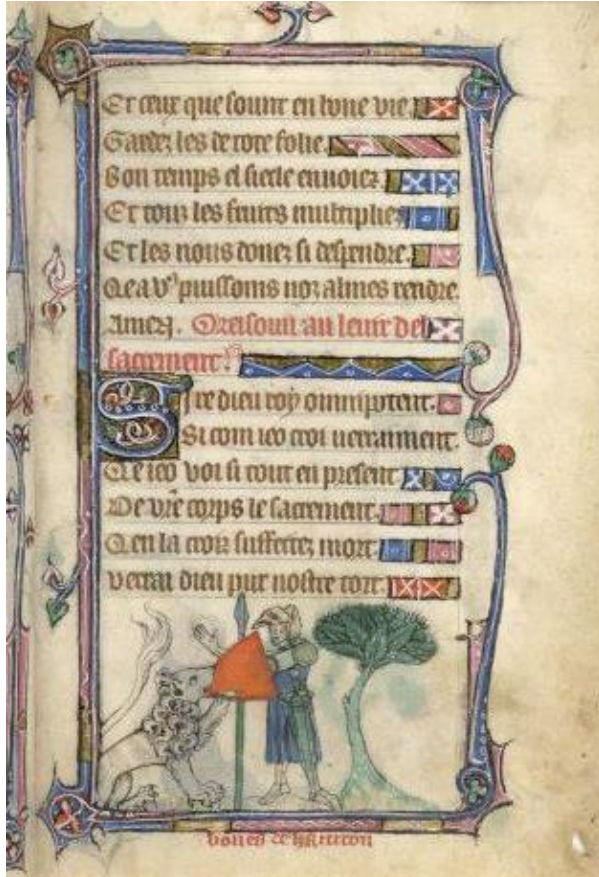 Et ceux que sount en bone vie.
Gardez les de tote folie.
Bon temps el siecle enuoiez
Et touz les fruits multipliez
Et les nous donez si despendre.
Qe a vo9 puissoms noz almes rendre.
Amen. Oreisoun au leuer del
sacrement.
Sire dieu roy omnipotent.
Si com ieo croi uerraiment.
Qe ieo voi si tout en present
De vre corps le sacrement.
Qen la croiz suffertez mort
verrai dieu pur nostre tort.